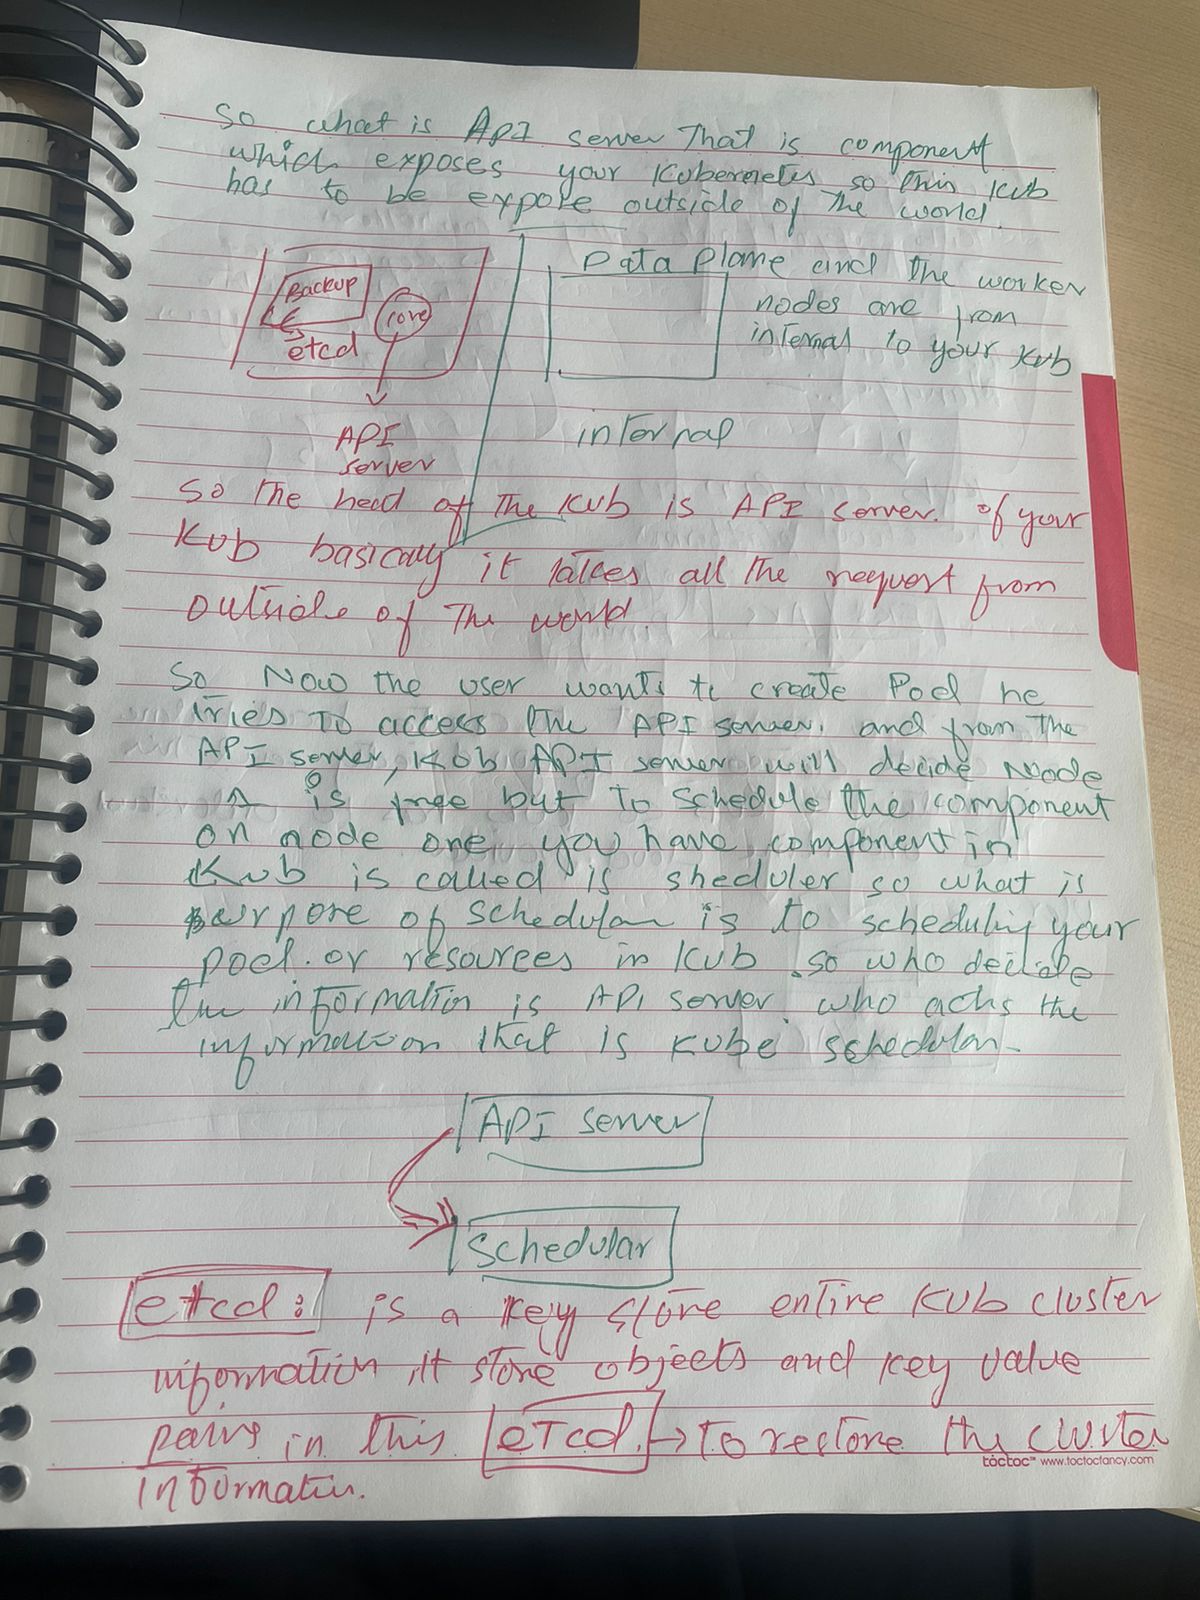 So what is API server That is component
which exposes your Kubernetes so this kub
has to be expose outside of the world.
Backup
core
etcd
API
server
Data Plane and the worker
nodes are from
internal to your kub
internal
So the head of the Kub is API server. of your
Kub basically it takes all the request from
outside of The world.
So Now the user wants to create Pod he
tries To access the API server. and from the
API server, Kub API server will decide Node
1 is free but to schedule the component
on node one you have component in
Kub is called is sheduler so what is
purpose of schedular is to scheduling your
pod. or resources in Kub. so who decide
the information is API server. who acts the
information that is Kube schedular-
API server
Schedular
etcd: is a key store entire Kub cluster
information it store objects and key value
pairs in this etcd. → To restore the cluster
information.
toctoc™ www.toctocfancy.com